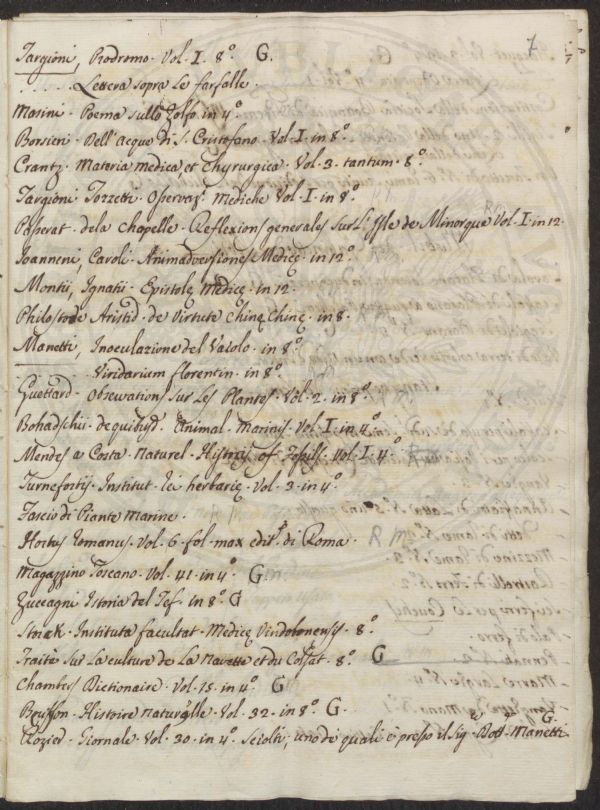 7
Targioni, Prodromo. Vol. I. 8.° G.
..... Lettera sopra le farfalle.
Masini. Poema sullo Zolfo in 4.°
Borsieri. Dell'acque di S. Cristofano. Vol. I. in 8.°
Crantz. Materia medica et Chyrurgica. Vol. 3. tantum. 8.°
Targioni Tozzetti. Osservaz.i Mediche Vol. I. in 8.°
Passerat. dela Chapelle. Reflexions generales sur L'Isle de Minorque Vol. I. in 12.
Joannini, Caroli. Animadversiones Medicę. in 12.°
Montii, Ignatii. Epistolę Medicę. in 12.
Aristid. de virtute Chinę Chinę. in 8.
Manetti, Inoculazione del Vaiolo. in 8.°
Viridarium florentin. in 8.°
Guettard. Observations sur Les Plantes. Vol. 2. in 8.°
Bohadschii. de quibusd. Animal. Marinis. Vol. I. in 4.°
Mendes a Costa. Naturel. History of Fossils. Vol. I. 4.°
Turnefortij. Institut. rei herbarię. Vol. 3. in 4.°
Fascio di Piante Marine.
Hortus Romanus. Vol. 6. fol. max. ediz. di Roma. R m
Magazzino Toscano. Vol. 41. in 4.° G.
Zuccagni Istoria del Tef. in 8.° G
Störk. Instituta facultat. Medicę Vindobonensis. 8.°
Traitè sur La culture de La Navette et du Colsat. 8.° G
Chambers Dictionaire. Vol. 15. in 4.° G
Beuffon. Histoire naturelle. Vol. 32. in 8.° G.
Rozier. Giornale. Vol. 30. in 4.° Sciolti, uno de quali è presso il Sig.e Dott.e Manetti. G.